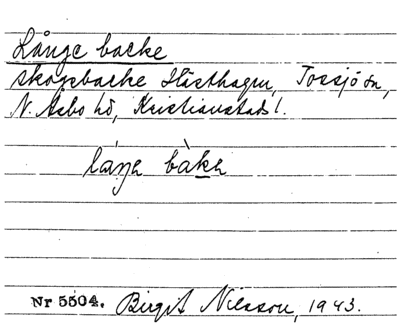 Långe backe
skogsbacke Hästhagen, Tossjö sn,
N. Åsbo hd, Kristianstads l.
láŋe bàke
Nr 5504. Birgit Nilsson, 1943.